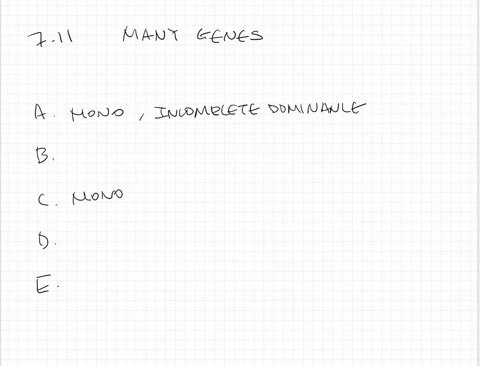 7.11 MANY GENES
A. MONO, INCOMPLETE DOMINANCE
B.
C. MONO
D.
E.